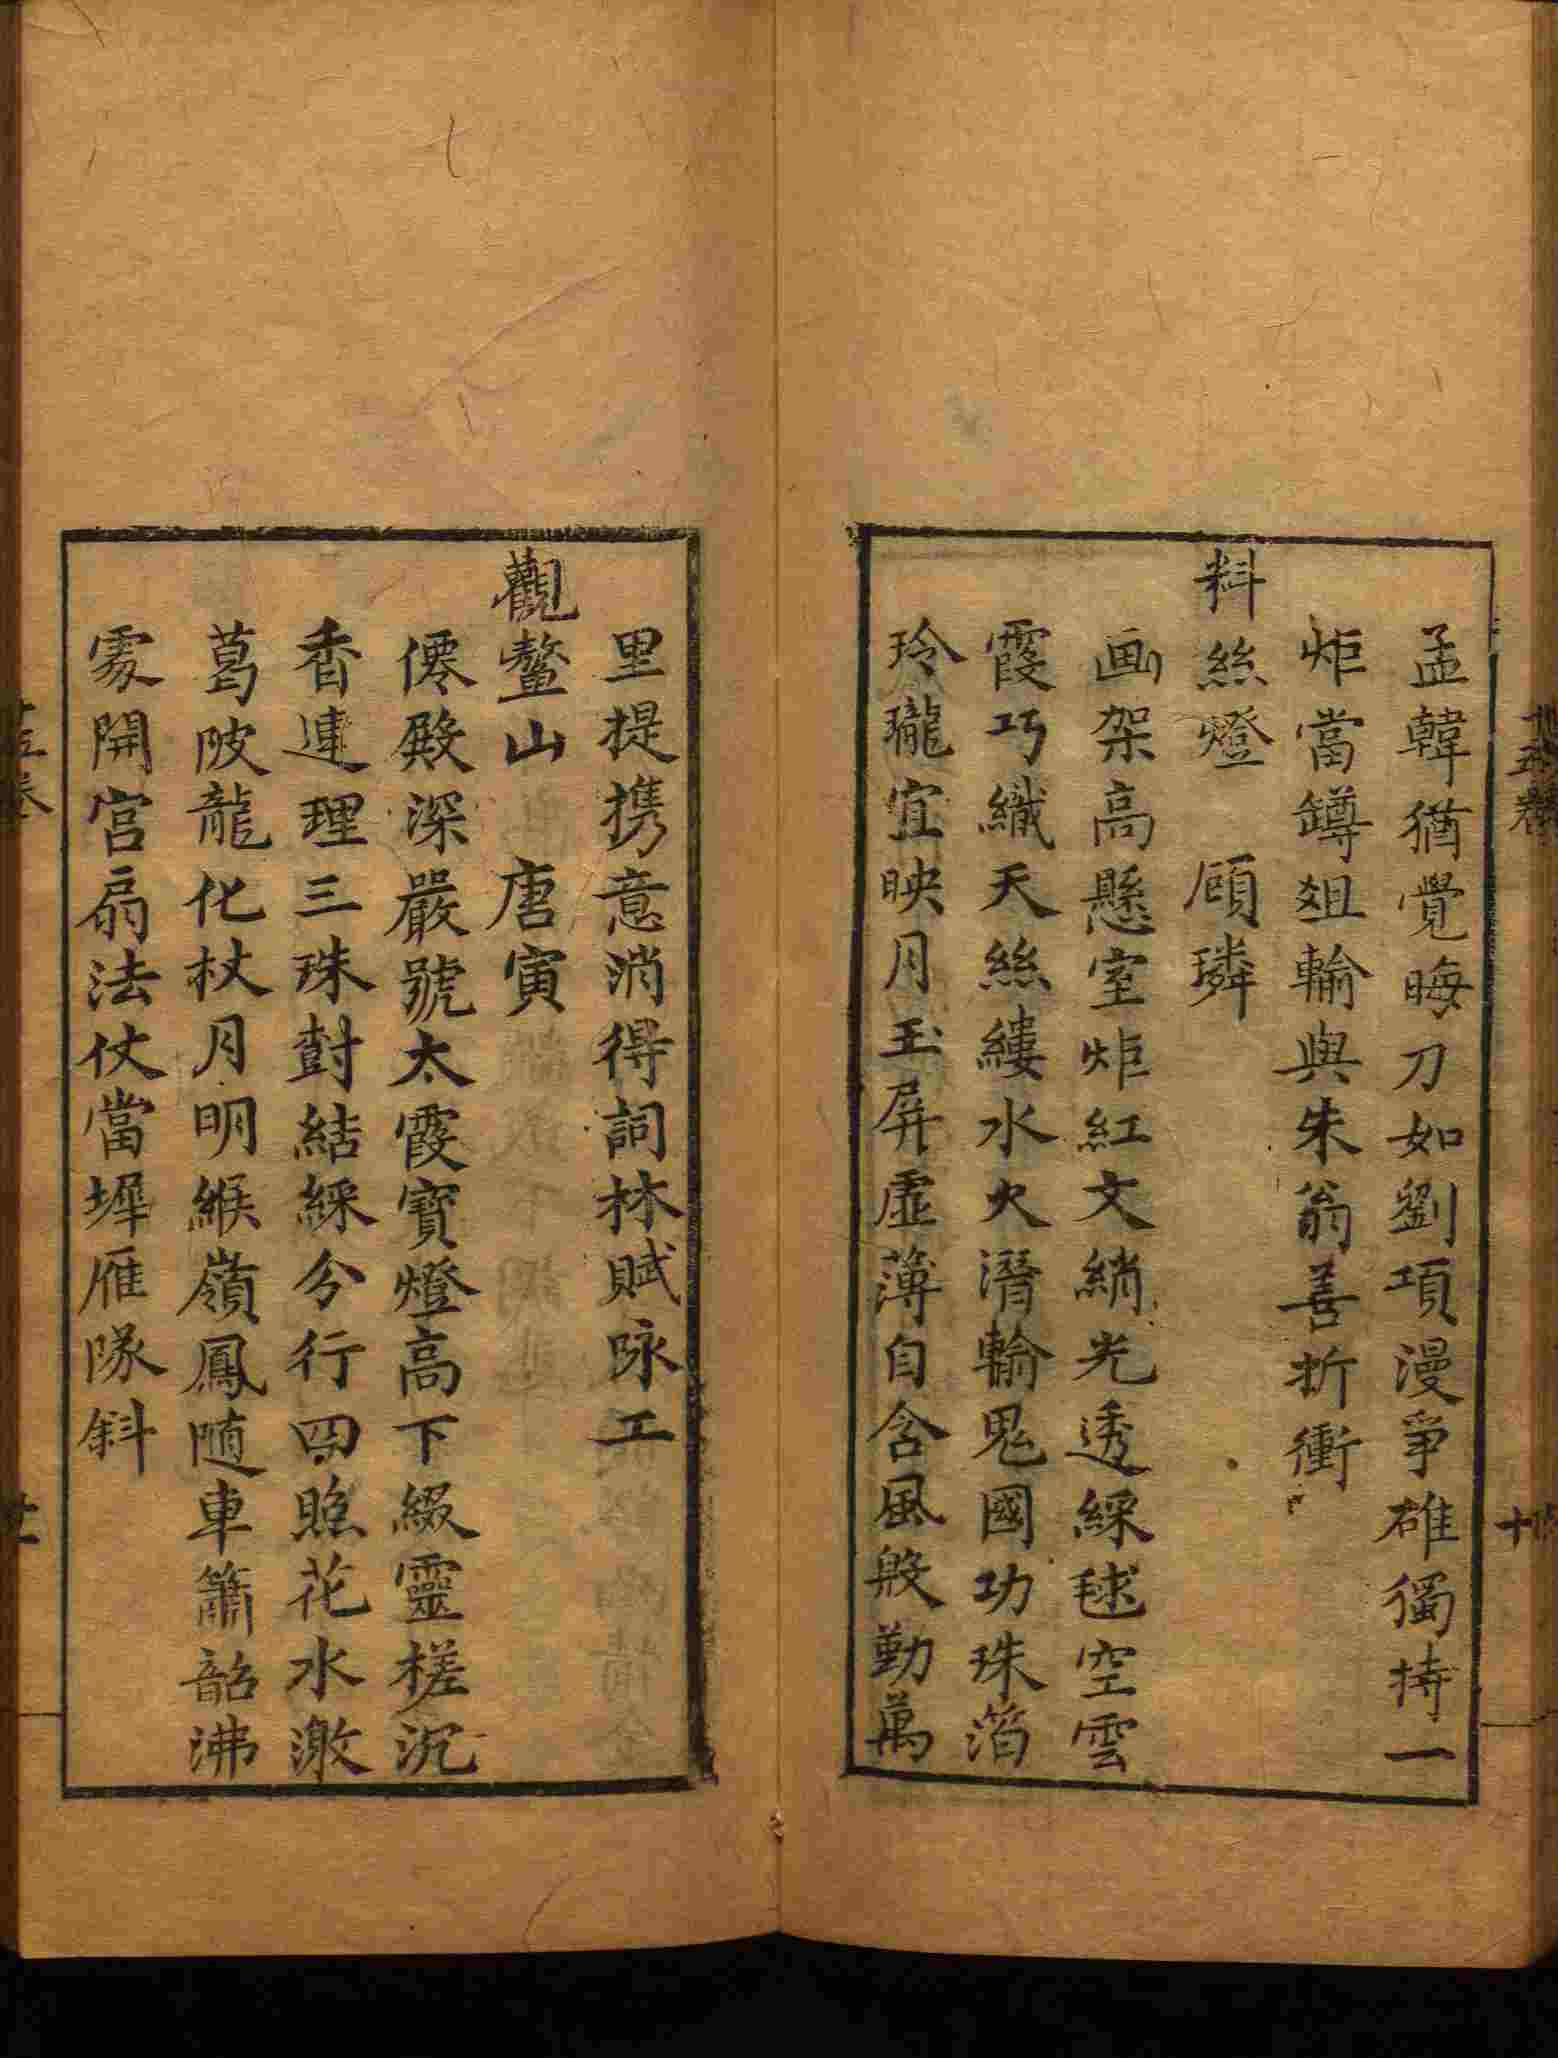 孟韓猶覺晦刀如劉項漫爭雄獨持一
炬當罇爼輪與朱翁善折衝
料絲燈　顧璘
画架高懸室炬紅文綃光透綵毬空雲
霞巧織天絲縷水火潛輪鬼國功珠箔
玲瓏宜映月玉屏虛薄自含風殷勤萬
里提携意消得詞林賦咏工
觀鰲山　唐寅
僊殿深嚴號太霞寳燈高下綴靈槎沉
香連理三珠對結綵分行四照花水激
葛陂龍化杖月明緱嶺鳳随車簫韶沸
處開宮扇法仗當墀雁隊斜